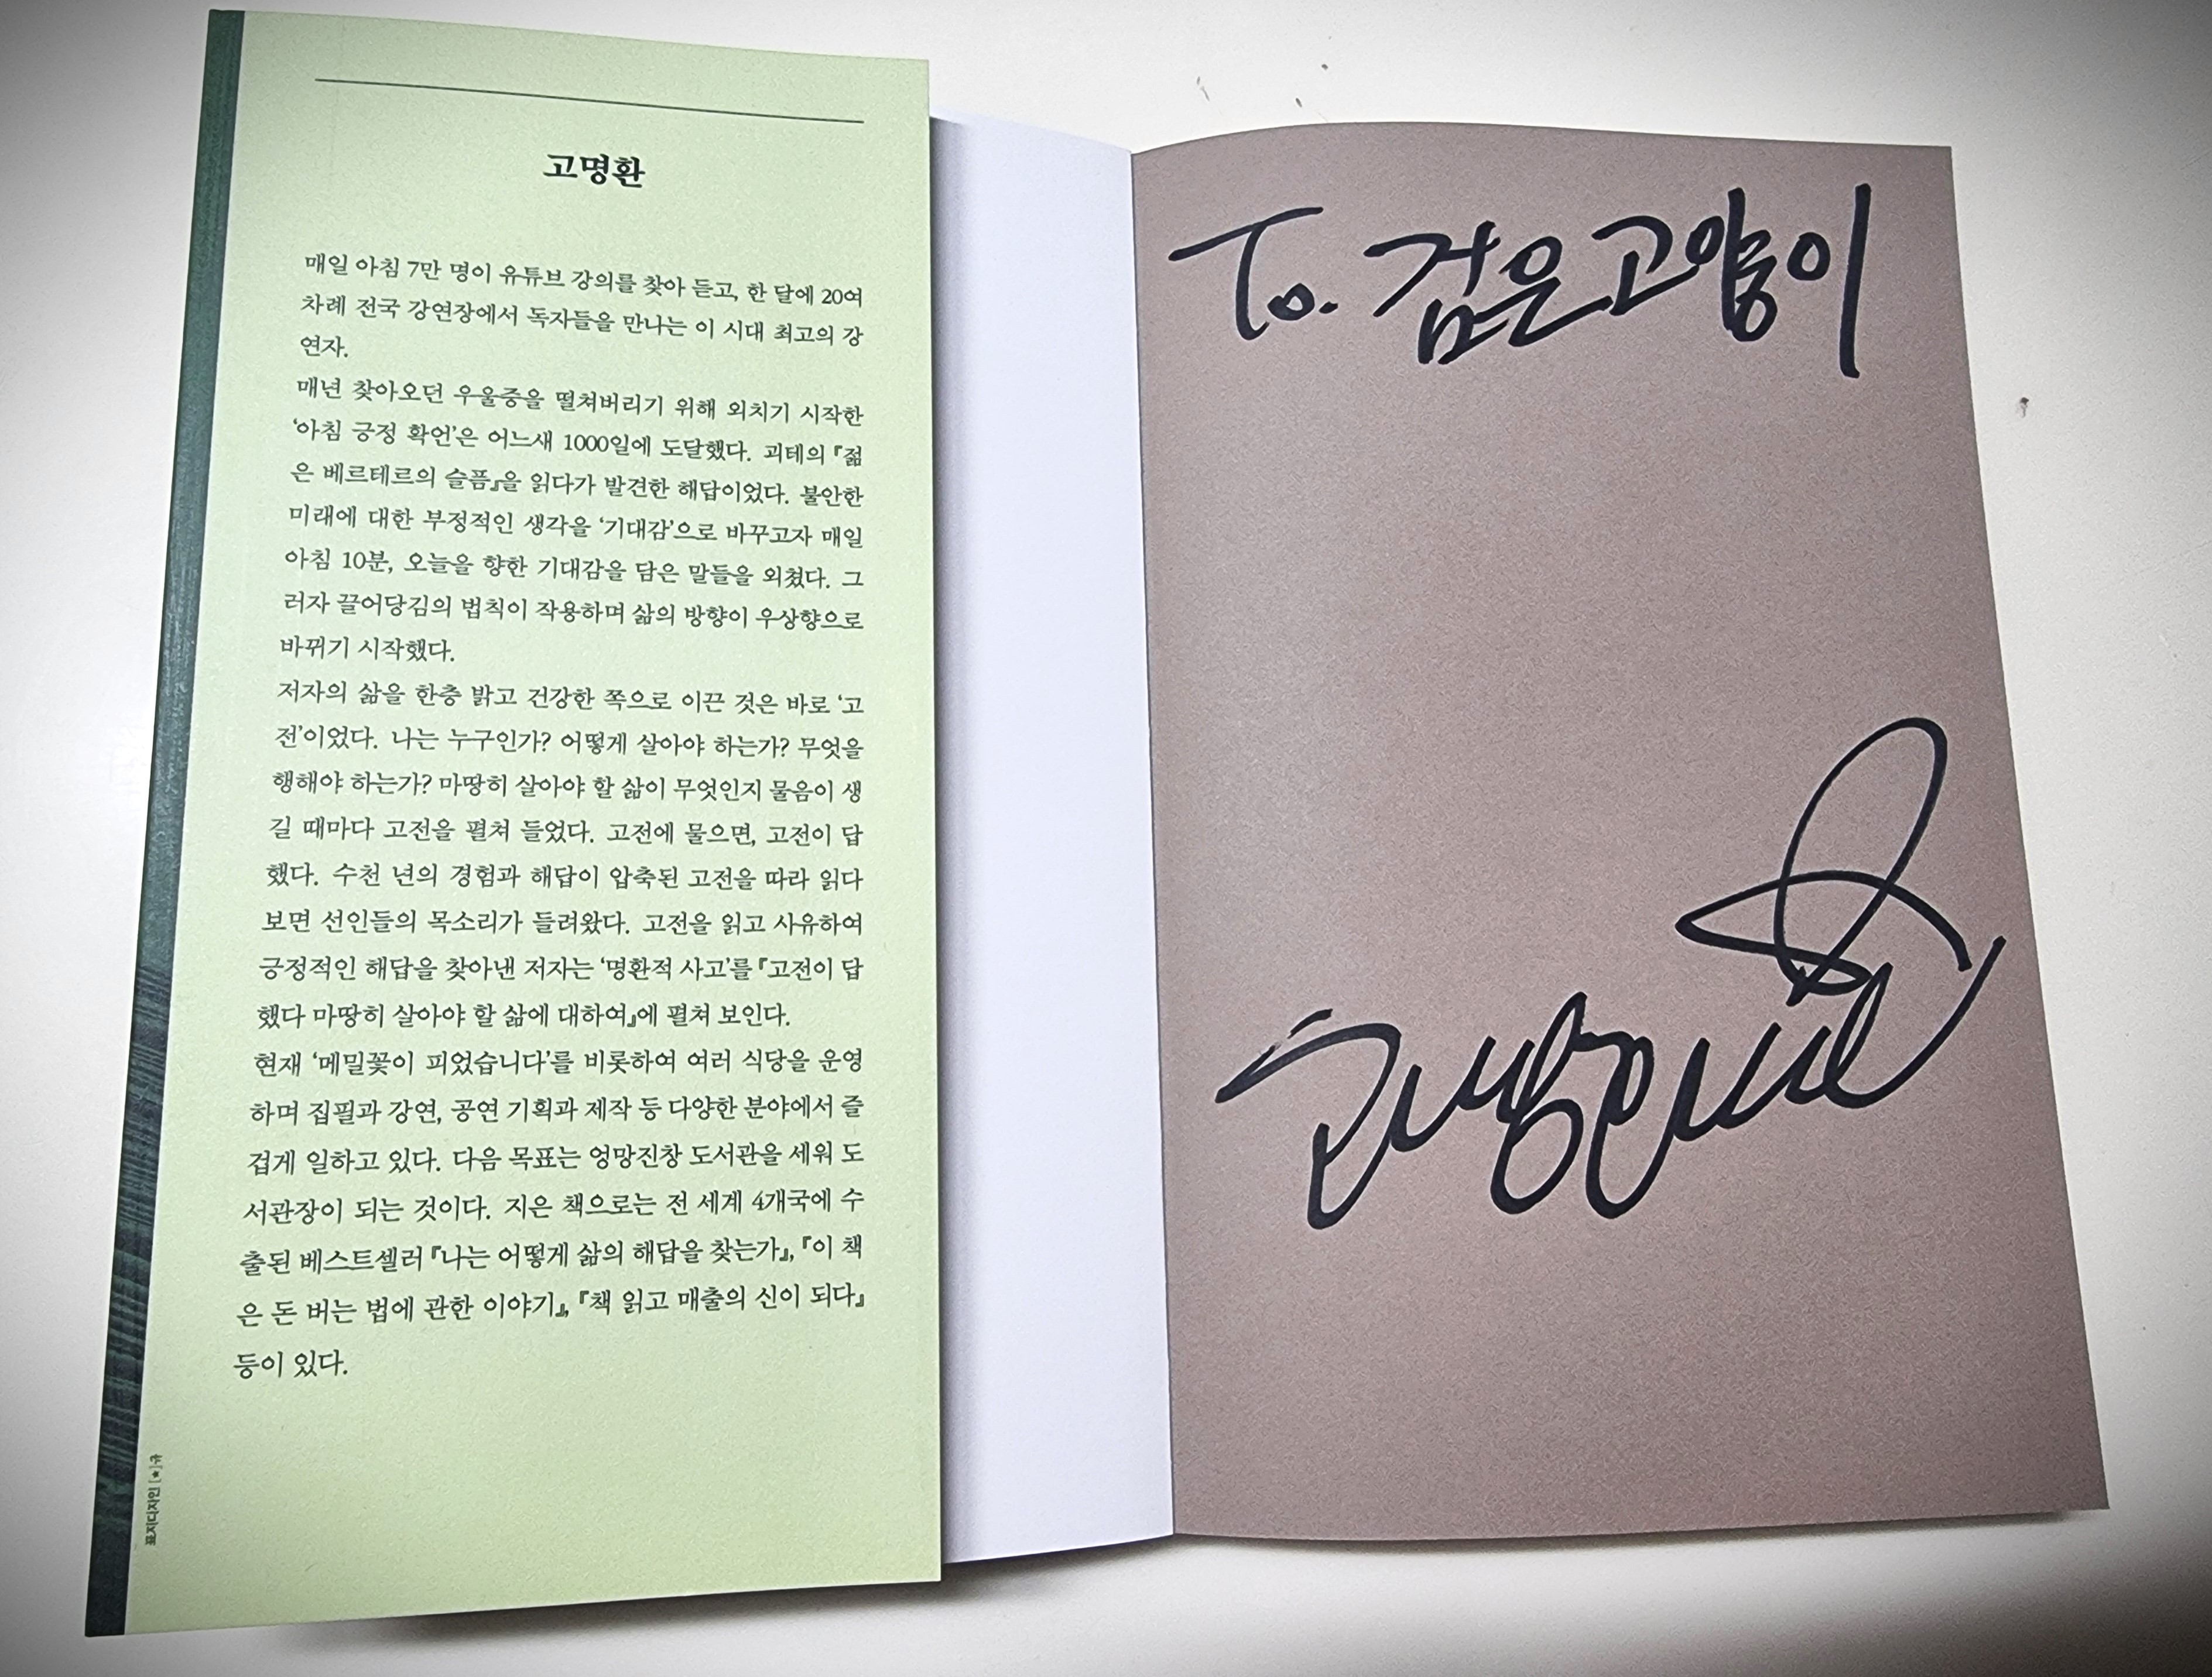 고명환
매일 아침 7만 명이 유튜브 강의를 찾아 듣고, 한 달에 20여
차례 전국 강연장에서 독자들을 만나는 이 시대 최고의 강
연자.
매년 찾아오던 우울증을 떨쳐버리기 위해 외치기 시작한
‘아침 긍정 확언’은 어느새 1000일에 도달했다. 괴테의 『젊
은 베르테르의 슬픔』을 읽다가 발견한 해답이었다. 불안한
미래에 대한 부정적인 생각을 ‘기대감’으로 바꾸고자 매일
아침 10분, 오늘을 향한 기대감을 담은 말들을 외쳤다. 그
러자 끌어당김의 법칙이 작용하며 삶의 방향이 우상향으로
바뀌기 시작했다.
저자의 삶을 한층 밝고 건강한 쪽으로 이끈 것은 바로 ‘고
전’이었다. 나는 누구인가? 어떻게 살아야 하는가? 무엇을
행해야 하는가? 마땅히 살아야 할 삶이 무엇인지 물음이 생
길 때마다 고전을 펼쳐 들었다. 고전에 물으면, 고전이 답
했다. 수천 년의 경험과 해답이 압축된 고전을 따라 읽다
보면 선인들의 목소리가 들려왔다. 고전을 읽고 사유하여
긍정적인 해답을 찾아낸 저자는 ‘명환적 사고’를 『고전이 답
했다 마땅히 살아야 할 삶에 대하여』에 펼쳐 보인다.
현재 ‘메밀꽃이 피었습니다’를 비롯하여 여러 식당을 운영
하며 집필과 강연, 공연 기획과 제작 등 다양한 분야에서 즐
겁게 일하고 있다. 다음 목표는 엉망진창 도서관을 세워 도
서관장이 되는 것이다. 지은 책으로는 전 세계 4개국에 수
출된 베스트셀러 『나는 어떻게 삶의 해답을 찾는가』, 『이 책
은 돈 버는 법에 관한 이야기』, 『책 읽고 매출의 신이 되다』
등이 있다.
표지디자인 [★]규
To. 검은고양이